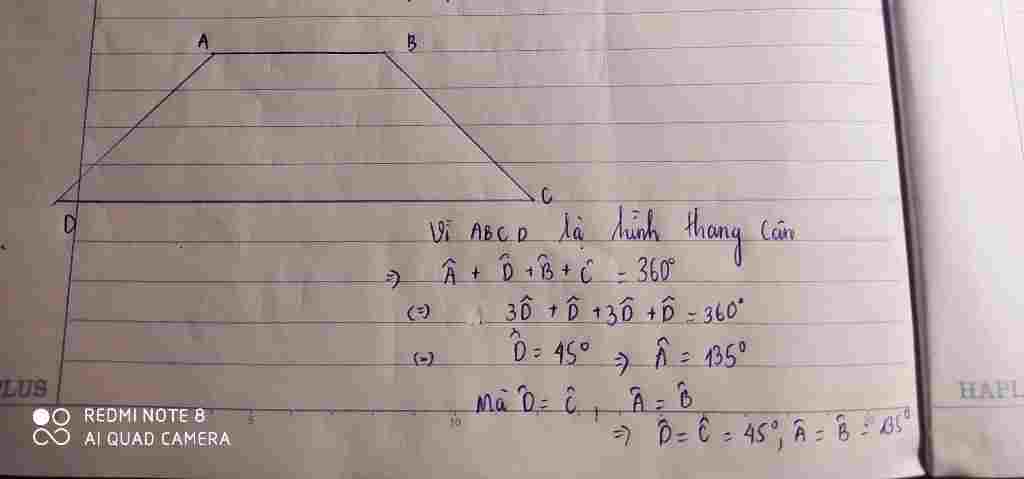 A B
D C
Vì ABCD là hình thang cân
=> Â + D̂ + B̂ + Ĉ = 360°
(=) 3D̂ + D̂ + 3D̂ + D̂ = 360°
(=) D̂ = 45° => Â = 135°
Mà D̂ = Ĉ, Â = B̂
=> D̂ = Ĉ = 45°, Â = B̂ = 135°
PLUS
HAPL
5 10
REDMI NOTE 8
AI QUAD CAMERA